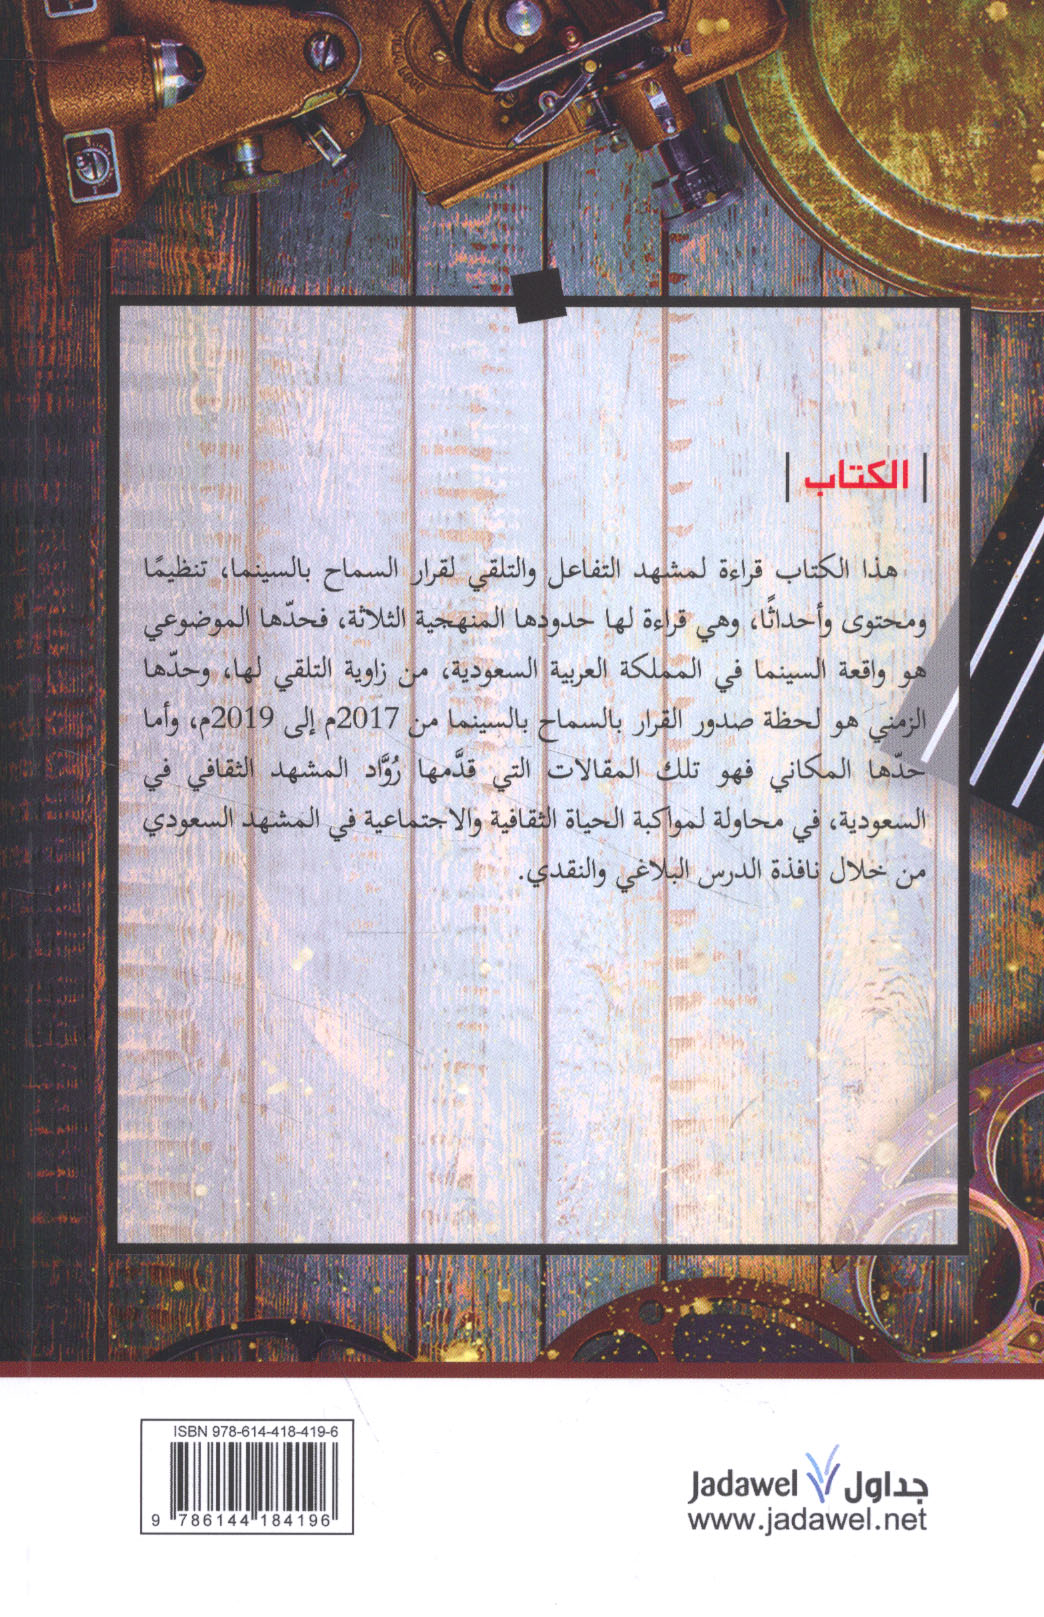 الكتاب
هذا الكتاب قراءة لمشهد التفاعل والتلقي لقرار السماح بالسينما، تنظيمًا
ومحتوى وأحداثًا، وهي قراءة لها حدودها المنهجية الثلاثة، فحدّها الموضوعي
هو واقعة السينما في المملكة العربية السعودية، من زاوية التلقي لها، وحدّها
الزمني هو لحظة صدور القرار بالسماح بالسينما من 2017م إلى 2019م، وأما
حدّها المكاني فهو تلك المقالات التي قدَّمها رُوَّاد المشهد الثقافي في
السعودية، في محاولة لمواكبة الحياة الثقافية والاجتماعية في المشهد السعودي
من خلال نافذة الدرس البلاغي والنقدي.
ISBN 978-614-418-419-6
9 786144 184196
Jadawel جداول
www.jadawel.net